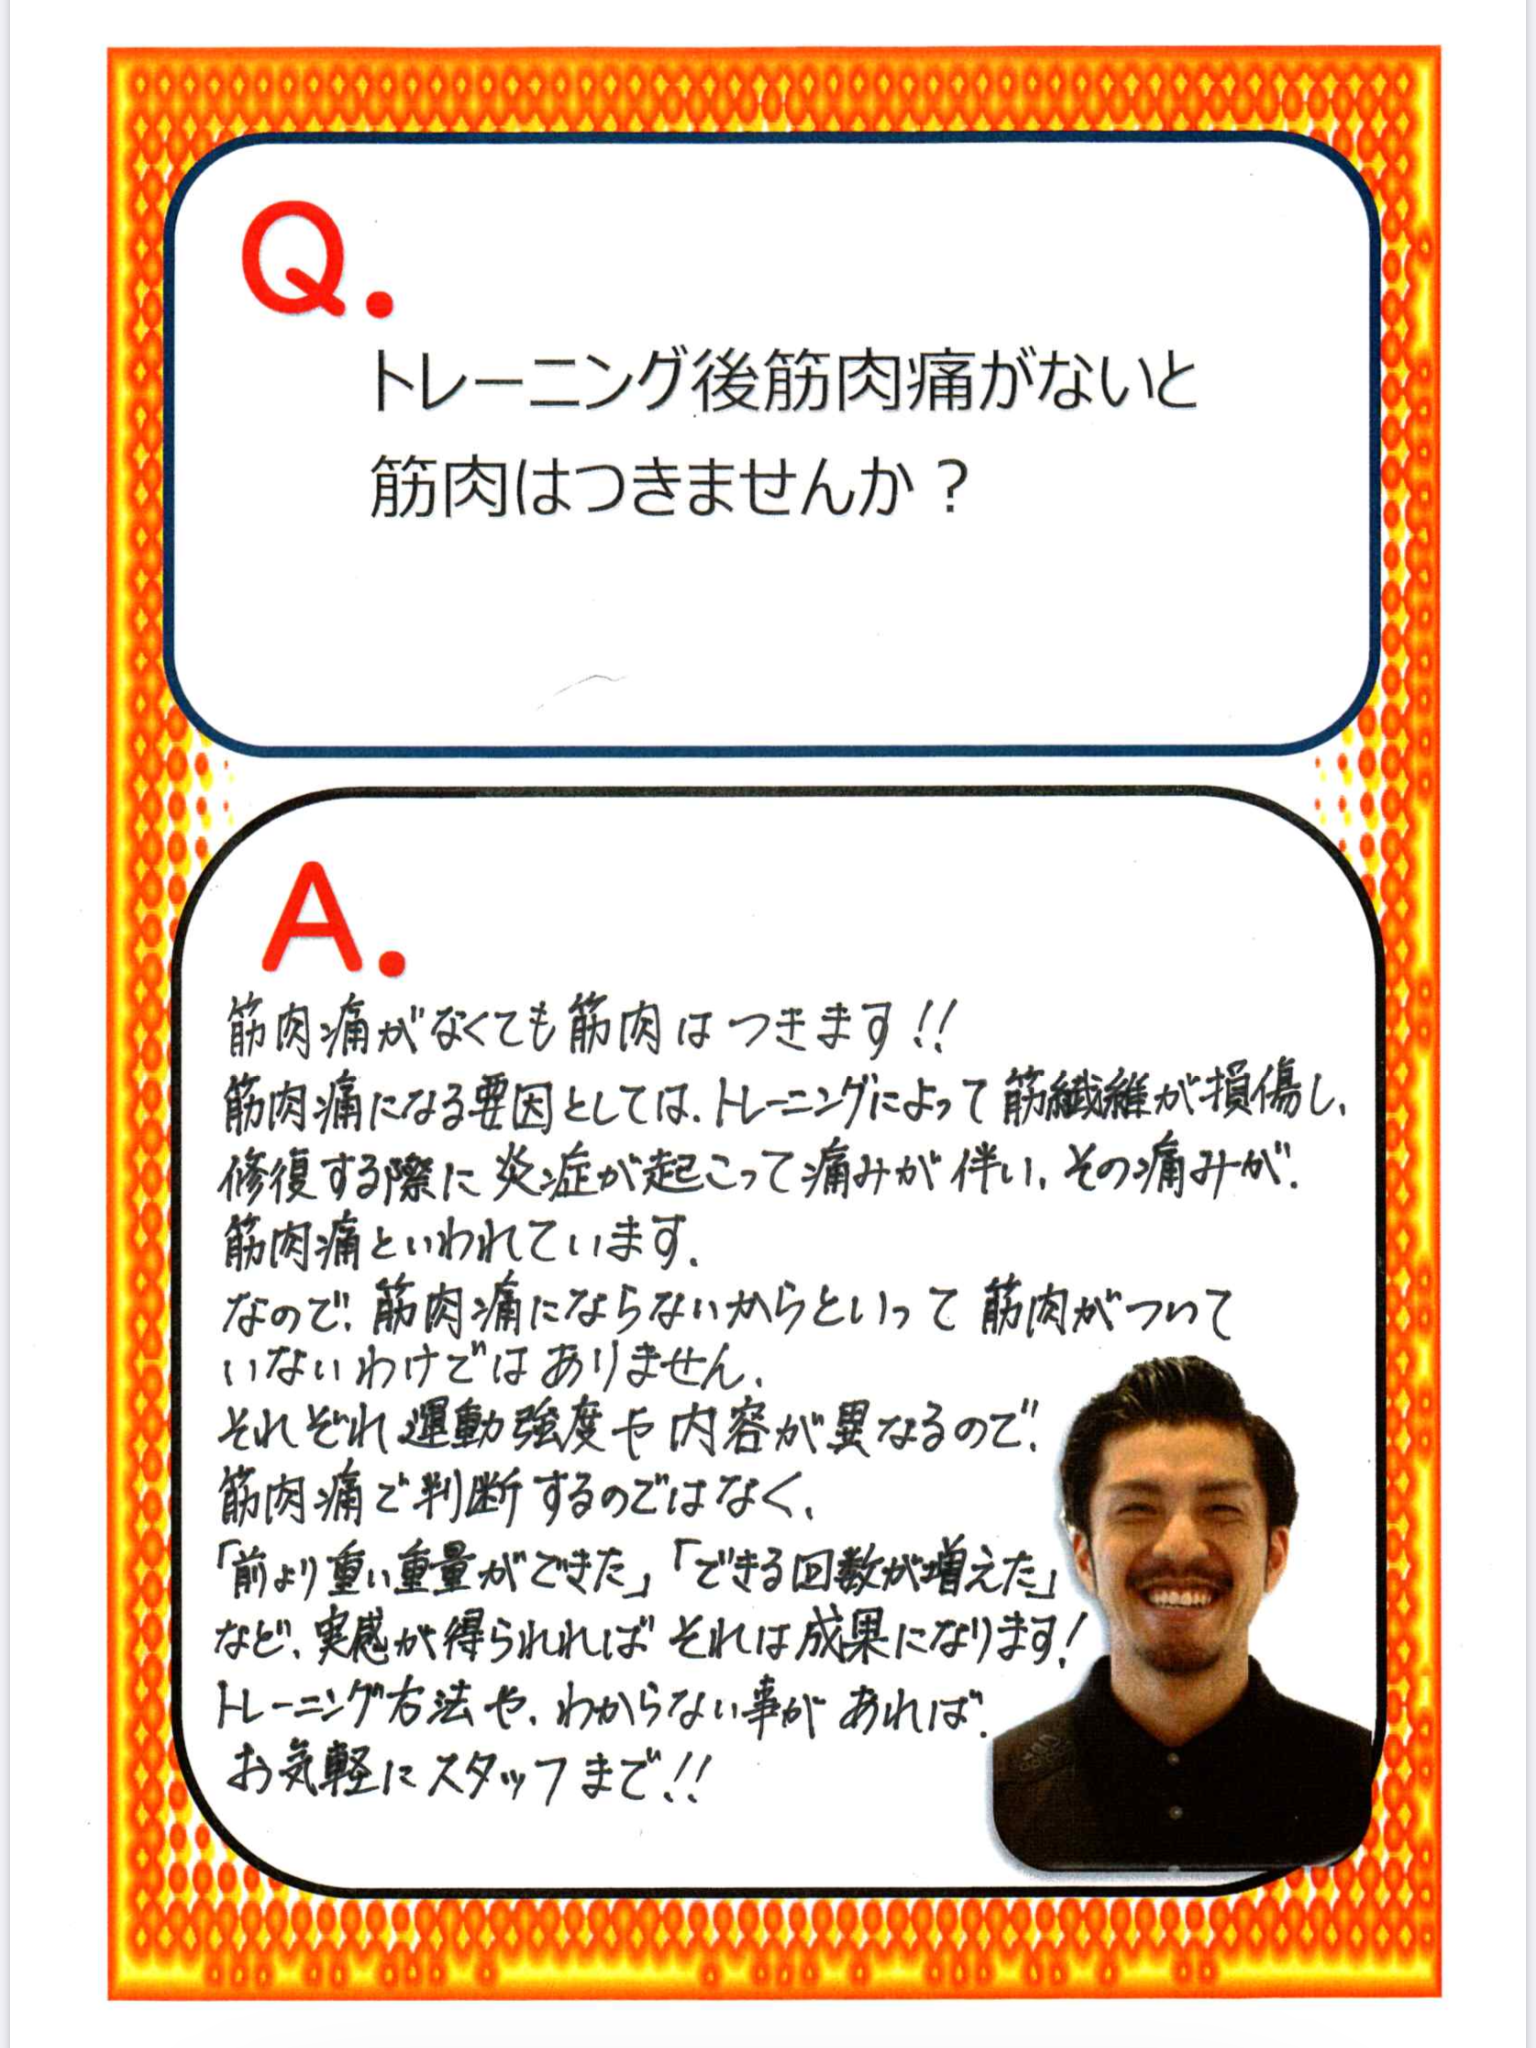 Q.
トレーニング後筋肉痛がないと
筋肉はつきませんか？
A.
筋肉痛がなくても筋肉はつきます!!
筋肉痛になる要因としては、トレーニングによって筋繊維が損傷し、
修復する際に炎症が起こって痛みが伴い、その痛みが、
筋肉痛といわれています。
なので、筋肉痛にならないからといって筋肉がついて
いないわけではありません。
それぞれ運動強度や内容が異なるので、
筋肉痛で判断するのではなく、
「前より重い重量ができた」「できる回数が増えた」
など、実感が得られればそれは成果になります!
トレーニング方法や、わからない事があれば、
お気軽にスタッフまで!!
adidas